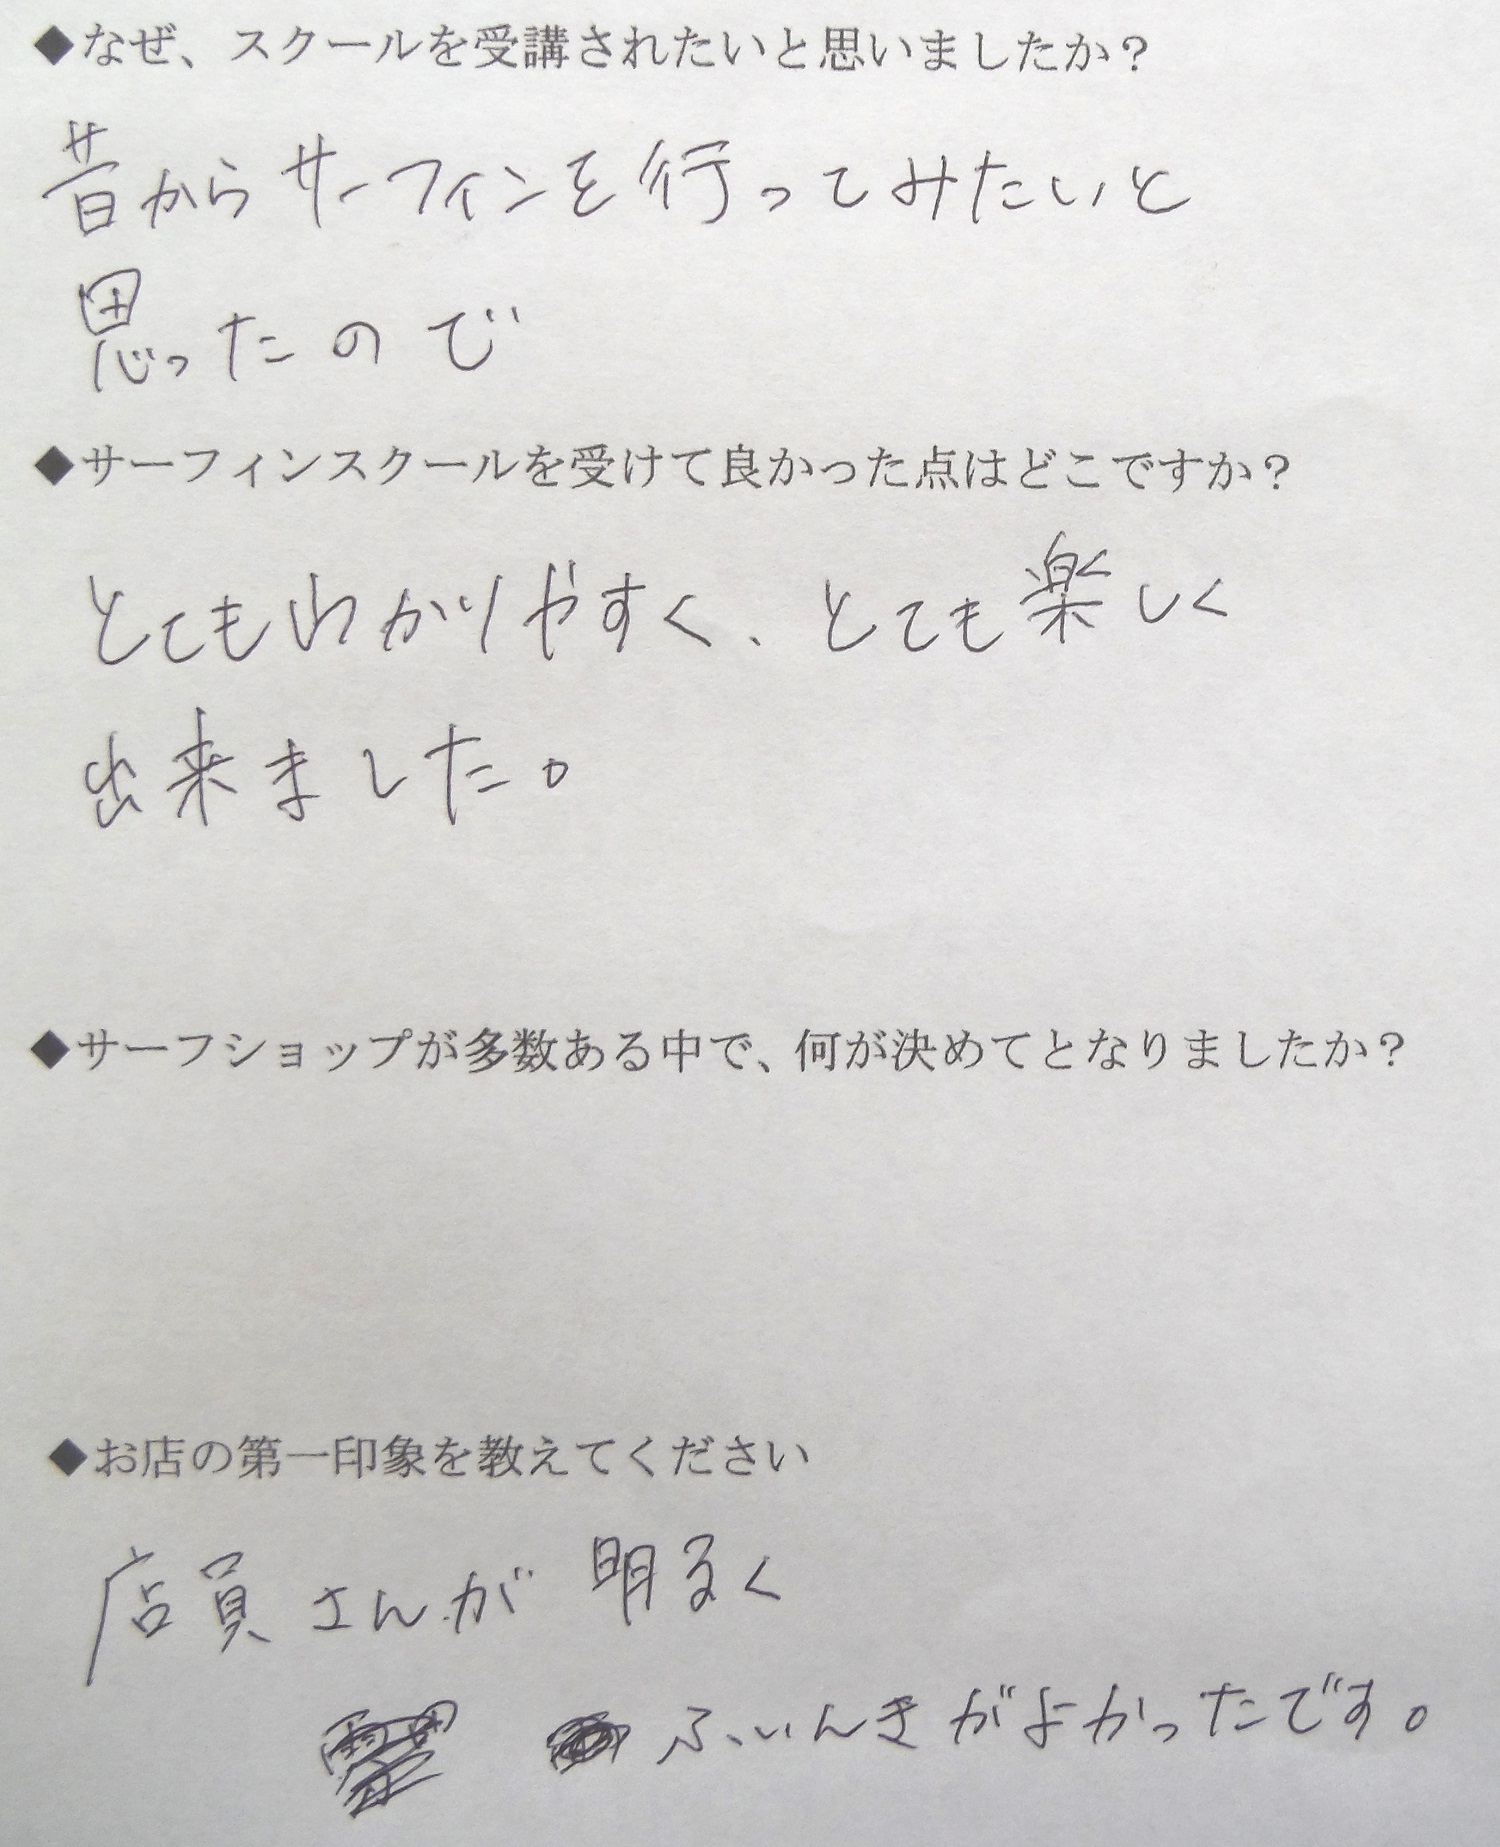 ◆なぜ、スクールを受講されたいと思いましたか？
昔からサーフィンを行ってみたいと
思ったので
◆サーフィンスクールを受けて良かった点はどこですか？
とてもわかりやすく、とても楽しく
出来ました。
◆サーフショップが多数ある中で、何が決めてとなりましたか？
◆お店の第一印象を教えてください
店員さんが明るく
ふいんきがよかったです。